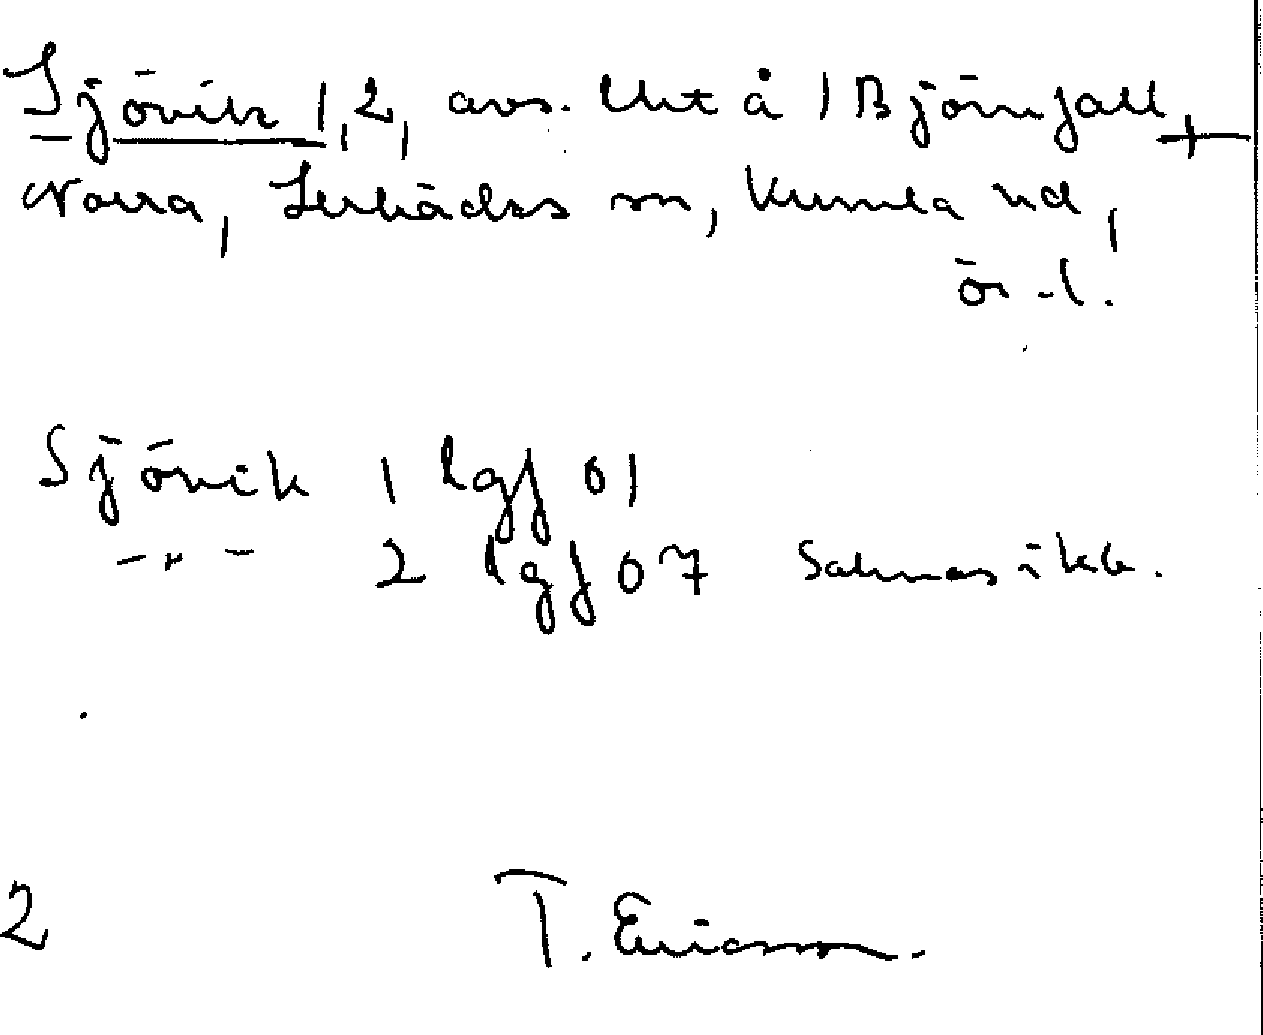 Sjövik 1, 2, avs. Utt å 1 Björnfall +
Norra, Lerbäcks sn, Kumla hd,
ör. l.
Sjövik 1 lgf 01
-"- 2 lgf 07 Saknas i kb.
2 T. Ericsson.